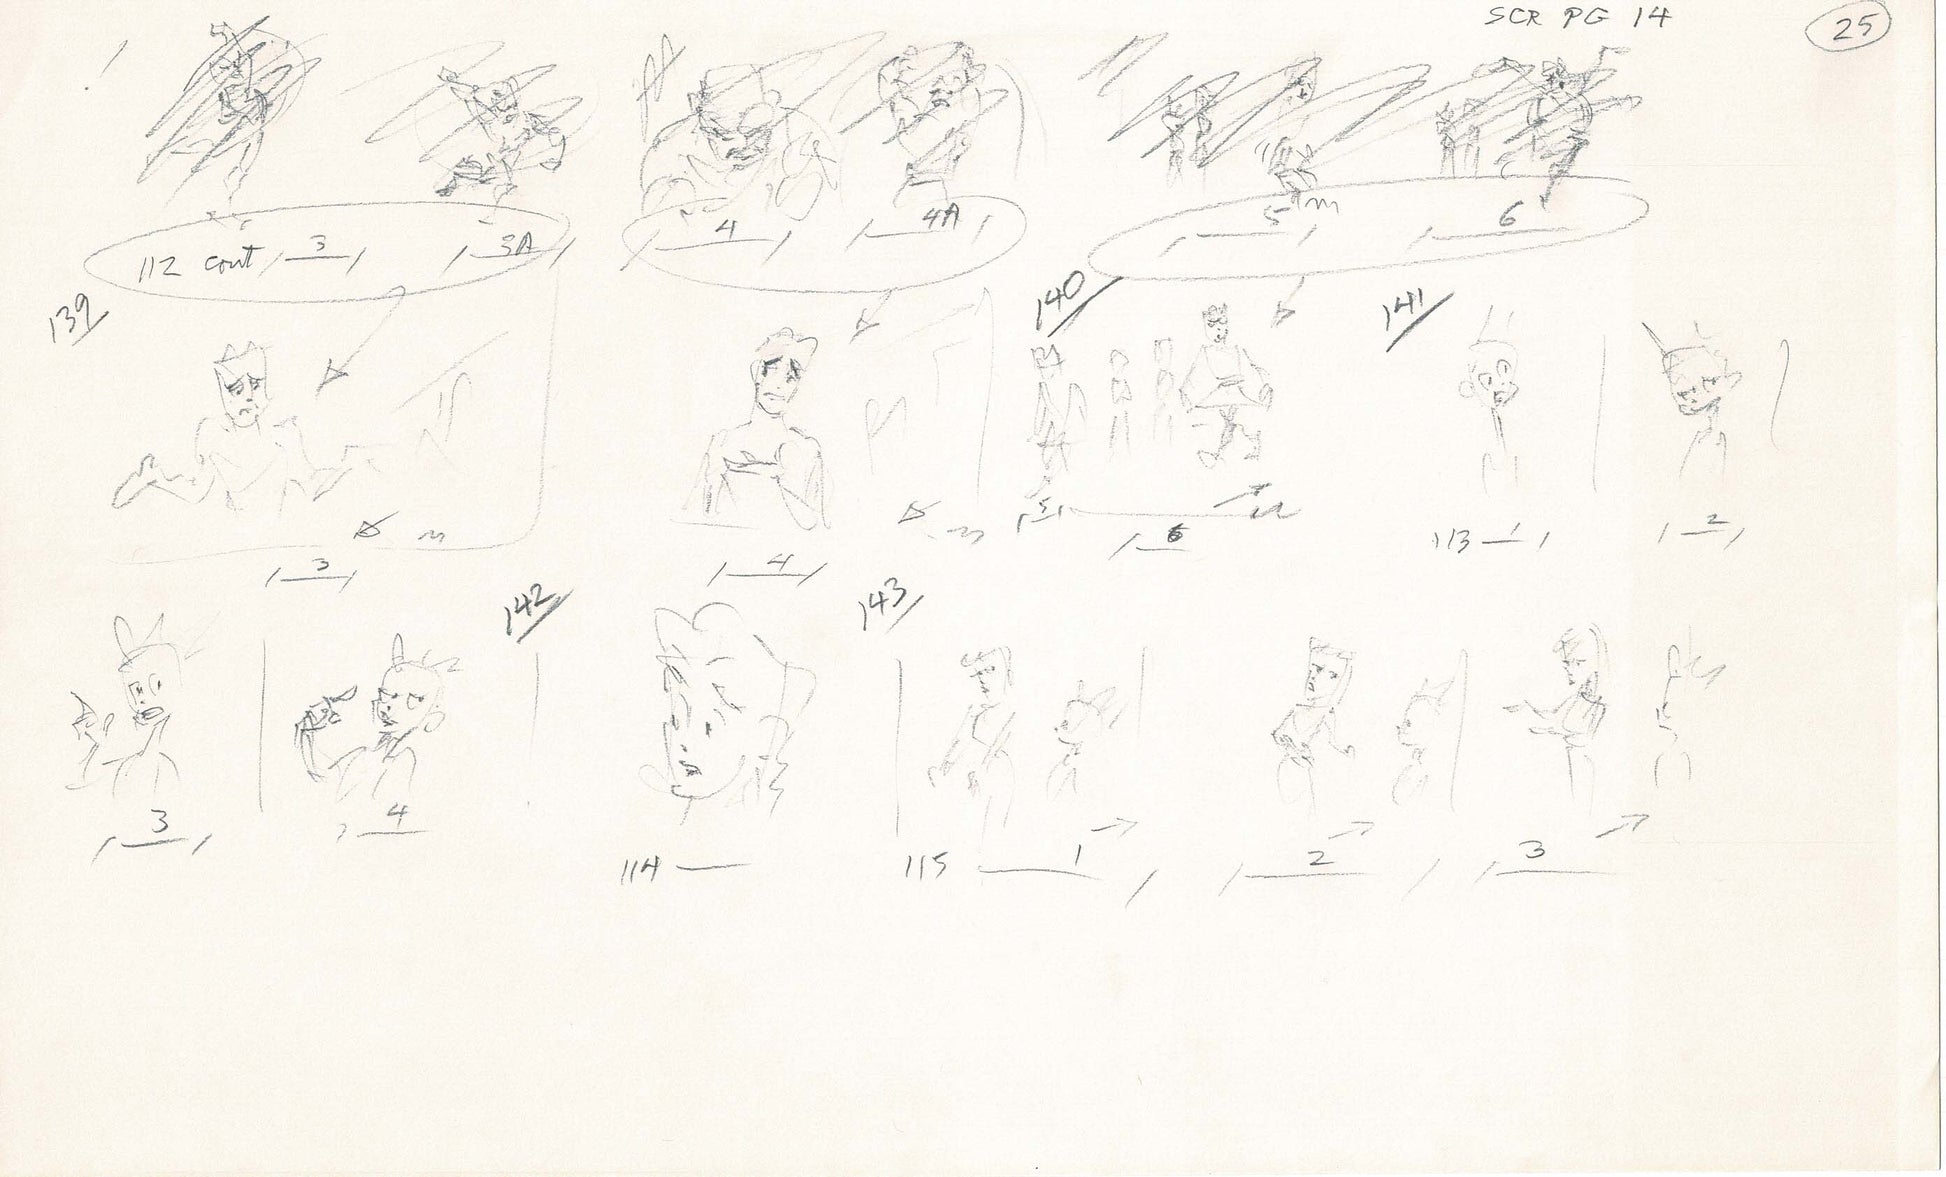 SCR PG 14
25
112 cont 3
3A
4
4A
5
6
139
140
141
3
4
5
6
113 1
2
142
143
3
4
114
115 1
2
3